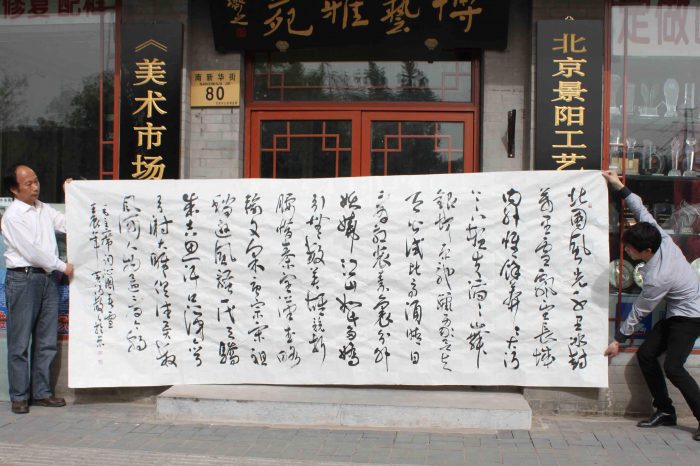 博藝雅苑
修复 配框
《美术市场
南新华街
80
《北京景阳工艺
定做
北国风光千里冰封
万里雪飘望长城
内外惟余莽莽大河
上下顿失滔滔山舞
银蛇原驰蜡象欲与
天公试比高须晴日
看红装素裹分外
妖娆江山如此多娇
引无数英雄竞折
腰惜秦皇汉武略
输文采唐宗宋祖
稍逊风骚一代天骄
成吉思汗只识弯
弓射大雕俱往矣数
风流人物还看今朝
毛主席词沁园春雪